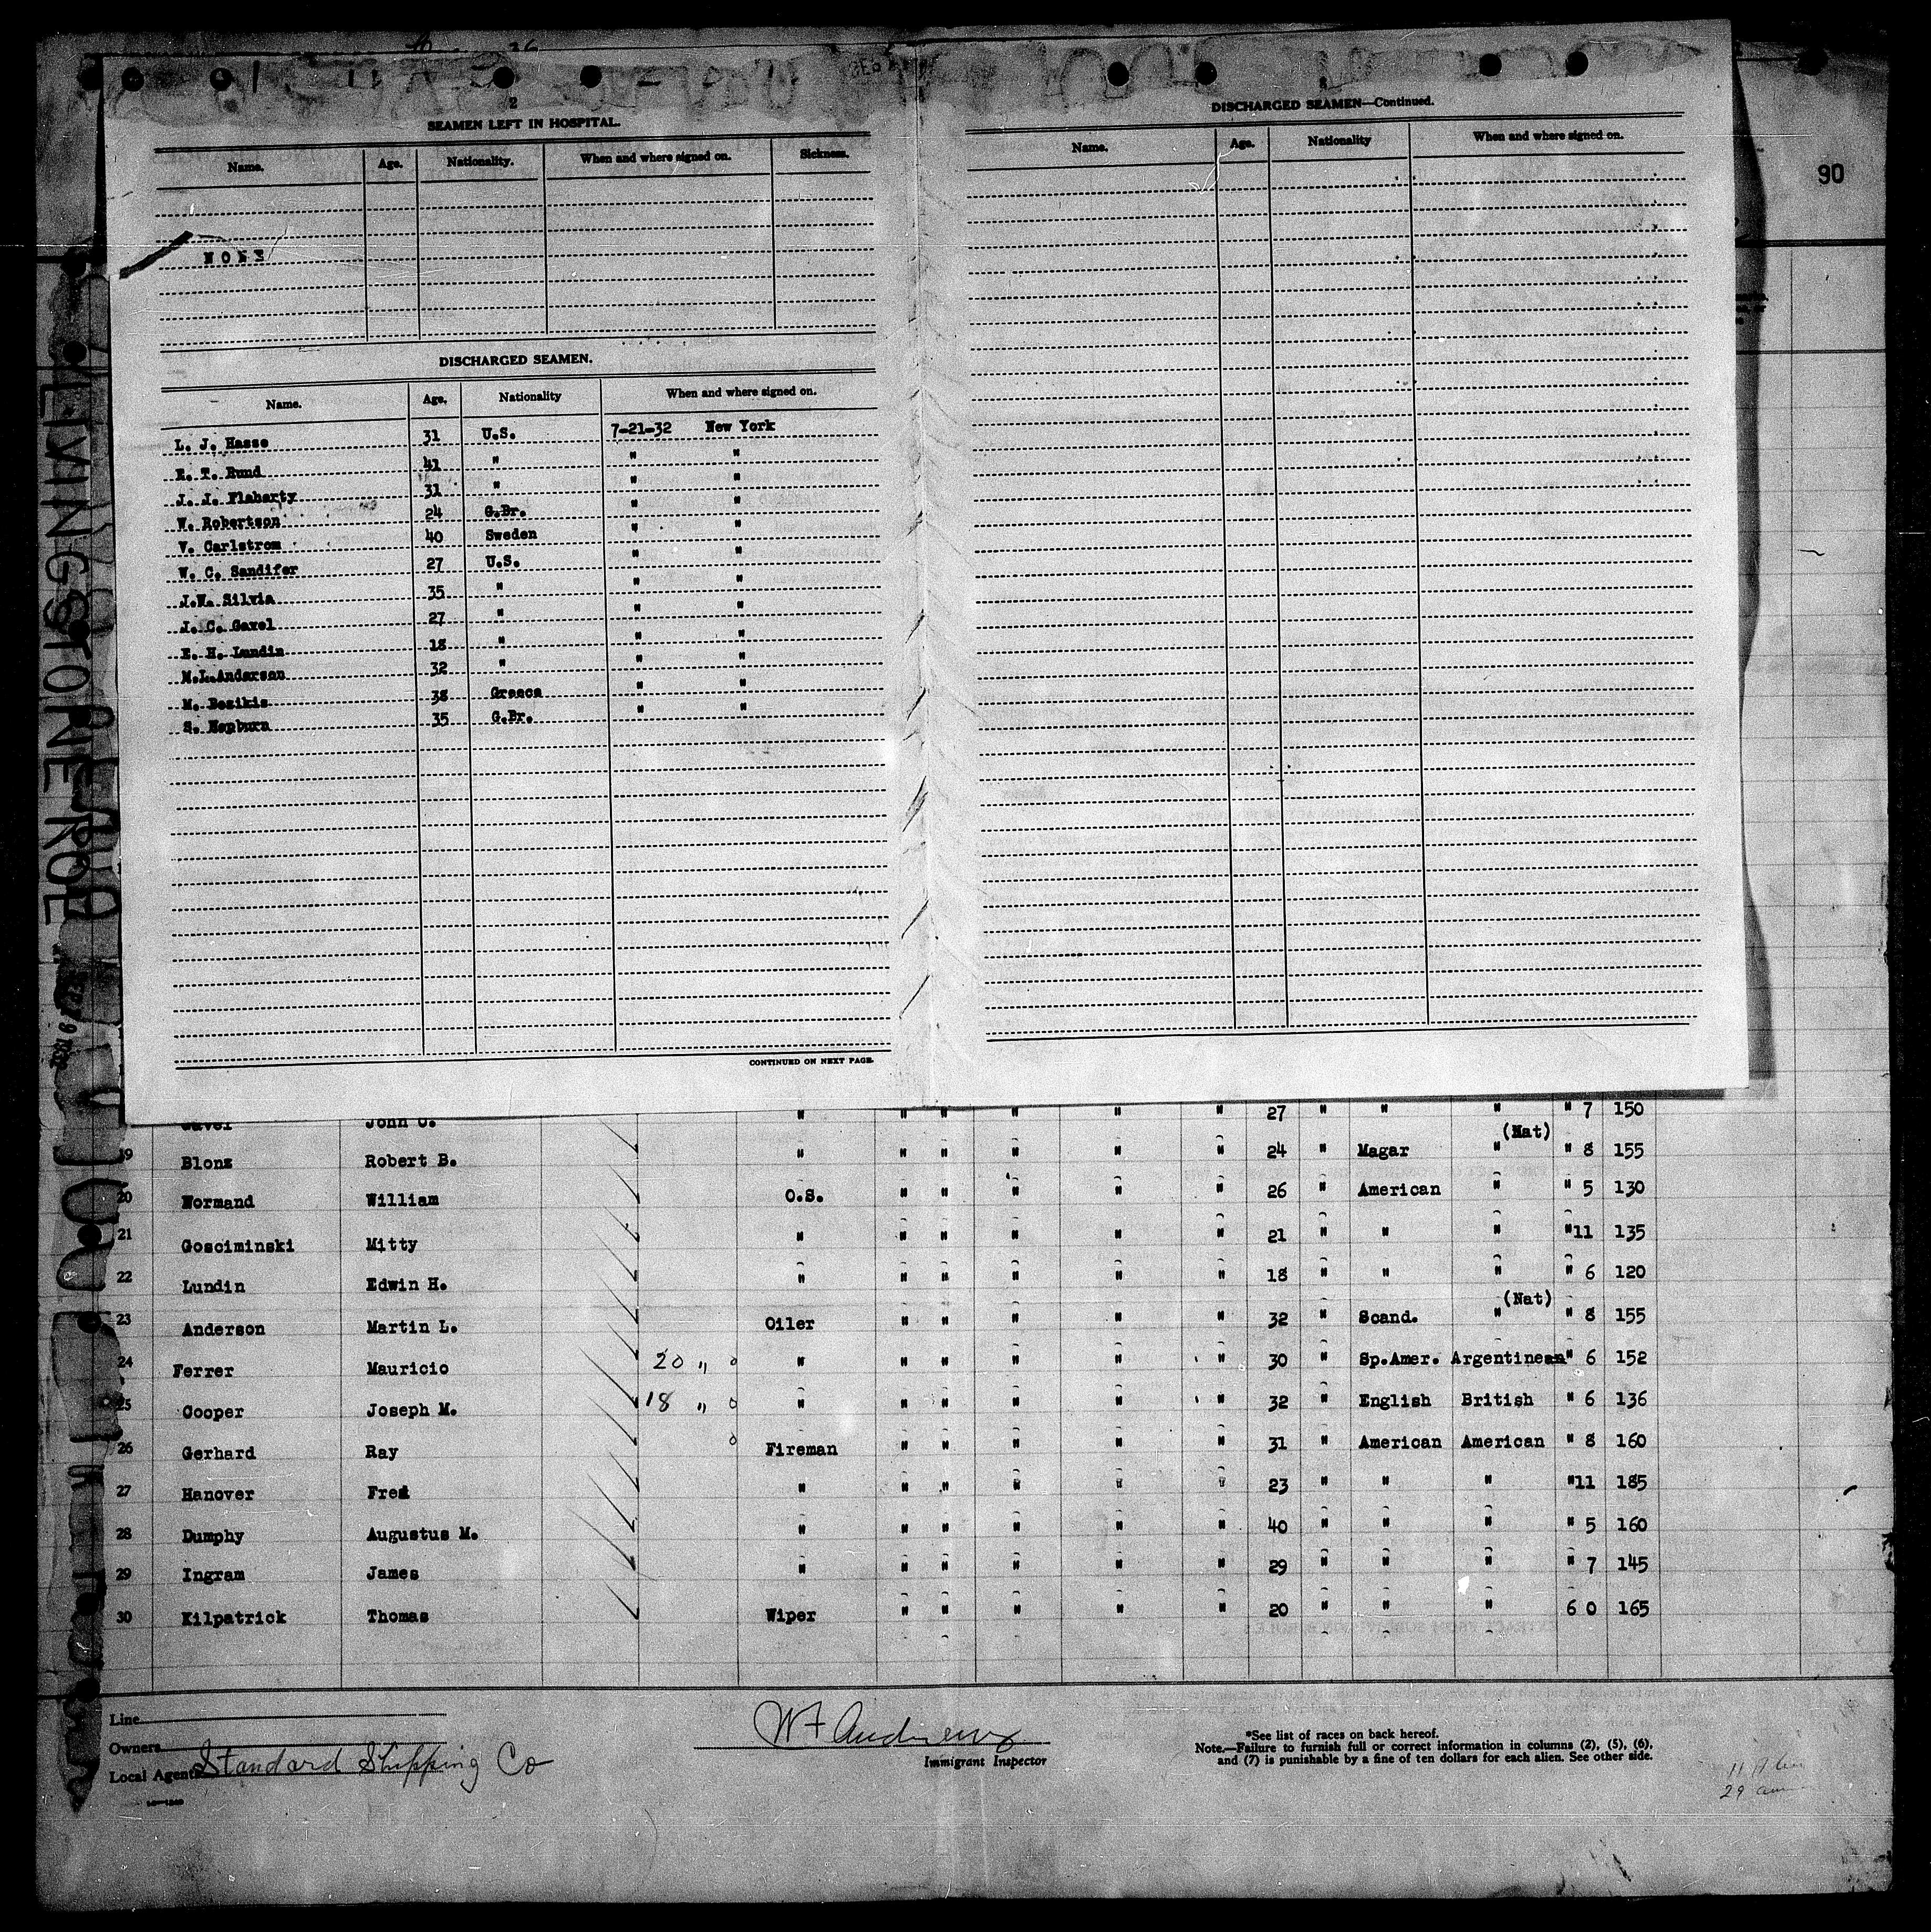 2
SEAMEN LEFT IN HOSPITAL.
Name. Age. Nationality. When and where signed on. Sickness.
NONE
DISCHARGED SEAMEN.
Name. Age. Nationality When and where signed on.
L. J. Hasse 31 U.S. 7-21-32 New York
E. T. Rund 41 " " "
J. J. Flaharty 31 " " "
W. Robertson 24 G.Br. " "
V. Carlstrom 40 Sweden " "
W. C. Sandifer 27 U.S. " "
J.W. Silvia 35 " " "
J. C. Gavel 27 " " "
E. H. Lundin 18 " " "
M.L.Anderson 32 " " "
M. Bezikis 38 Greece " "
S. Hepburn 35 G.Br. " "
CONTINUED ON NEXT PAGE.
DISCHARGED SEAMEN—Continued.
Name. Age. Nationality When and where signed on.
90
LIVINGSTONE ROE
Gavel John C. " " " " " " 27 " " " " 7 150
19 Blonz Robert B. " " " " " " 24 " Magar (Nat) " " 8 155
20 Normand William O.S. " " " " " 26 " American " " 5 130
21 Gosciminski Mitty " " " " " " 21 " " " "11 135
22 Lundin Edwin H. " " " " " " 18 " " " " 6 120
23 Anderson Martin L. Oiler " " " " " 32 " Scand. (Nat) " " 8 155
24 Ferrer Mauricio 20 " " " " " " " 30 " Sp.Amer. Argentinean" 6 152
25 Cooper Joseph M. 18 " " " " " " " 32 " English British " 6 136
26 Gerhard Ray Fireman " " " " " 31 " American American " 8 160
27 Hanover Fred " " " " " " 23 " " " "11 185
28 Dumphy Augustus M. " " " " " " 40 " " " " 5 160
29 Ingram James " " " " " " 29 " " " " 7 145
30 Kilpatrick Thomas Wiper " " " " " 20 " " " 6 0 165
Line
Owners
Local Agents Standard Shipping Co
W F Andrews
Immigrant Inspector
*See list of races on back hereof.
Note.—Failure to furnish full or correct information in columns (2), (5), (6),
and (7) is punishable by a fine of ten dollars for each alien. See other side.